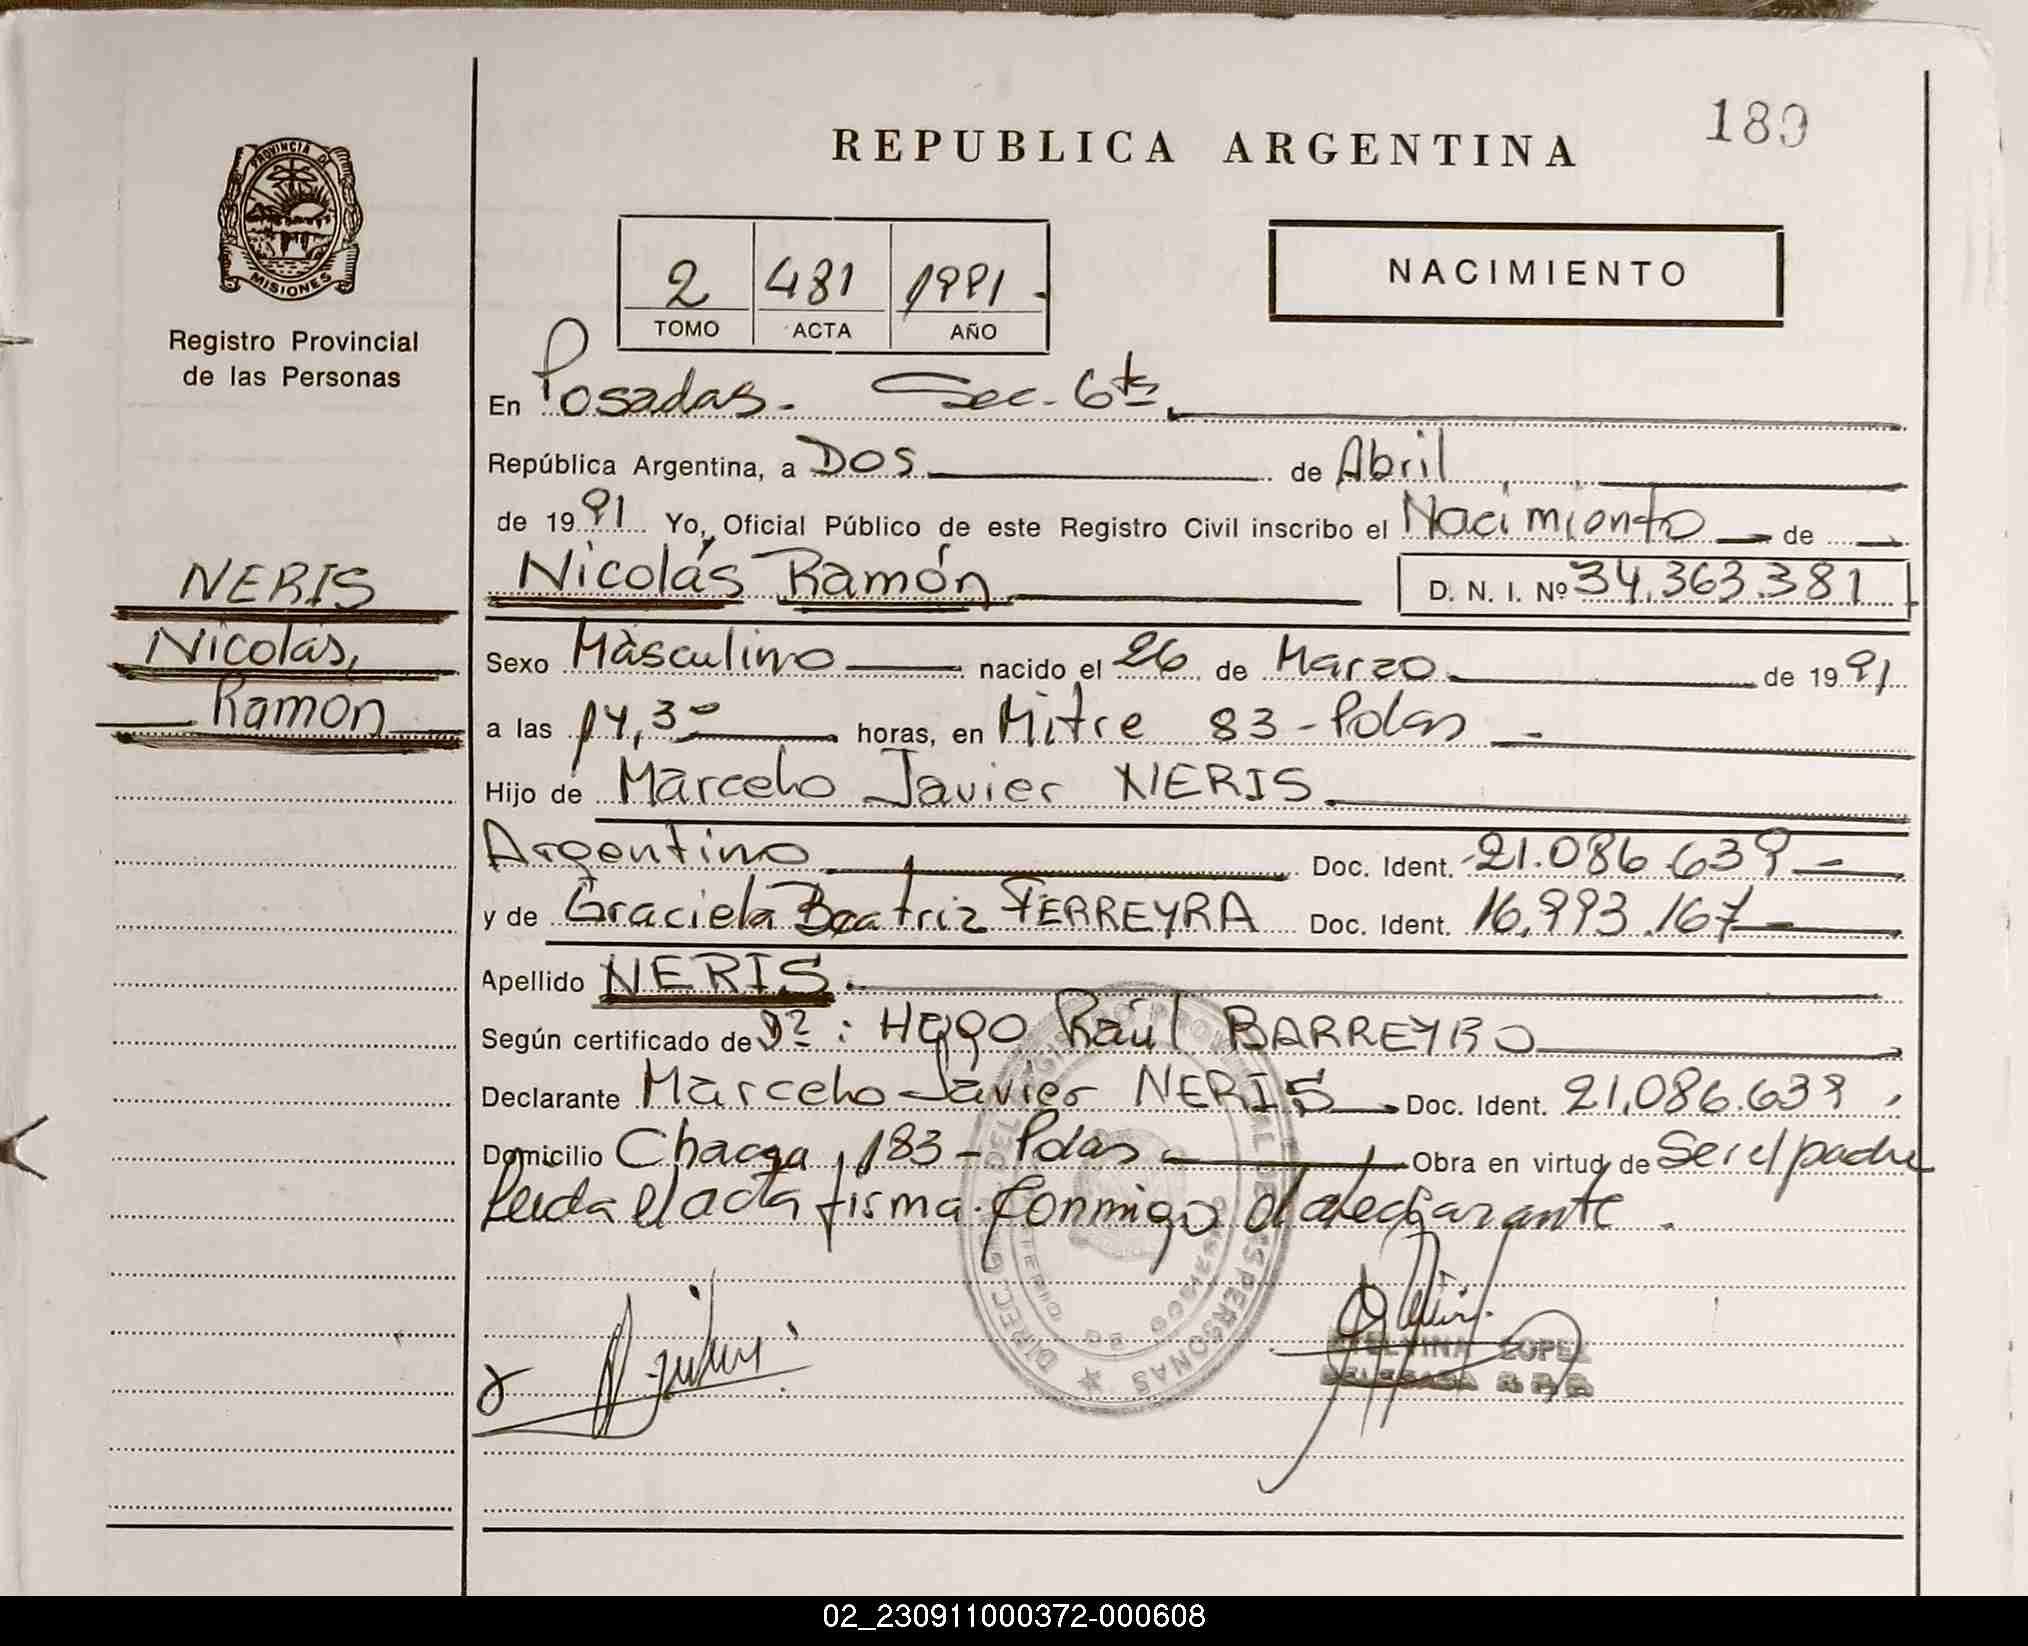 189
REPUBLICA ARGENTINA
PROVINCIA DE
MISIONES
Registro Provincial
de las Personas
2 481 1991.-
TOMO ACTA AÑO
NACIMIENTO
En Posadas.- Sec. 6ta.
República Argentina, a Dos de Abril
de 1991 Yo, Oficial Público de este Registro Civil inscribo el Nacimiento de
NERIS
Nicolás,
Ramón
Nicolás Ramón D. N. I. Nº 34.363.381
Sexo Masculino nacido el 26 de Marzo de 1991
a las 14,30 horas, en Mitre 83 - Pdas
Hijo de Marcelo Javier NERIS
Argentino Doc. Ident. 21.086.639
y de Graciela Beatriz FERREYRA Doc. Ident. 16.993.167
Apellido NERIS.
Según certificado de Dr: Hugo Raúl BARREYRO
Declarante Marcelo Javier NERIS Doc. Ident. 21.086.639
Domicilio 183 - Pdas Obra en virtud de Ser el padre
Leida el acta firma conmigo el declarante.
LOPEZ
DELEGADA R.P.P.
02_230911000372-000608